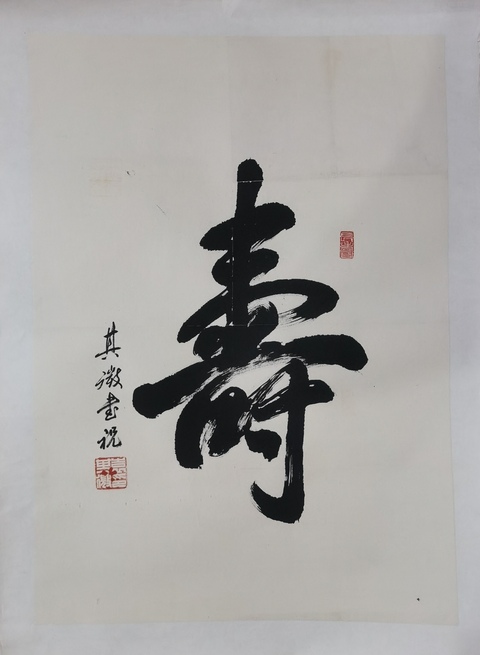 壽
其微書祝